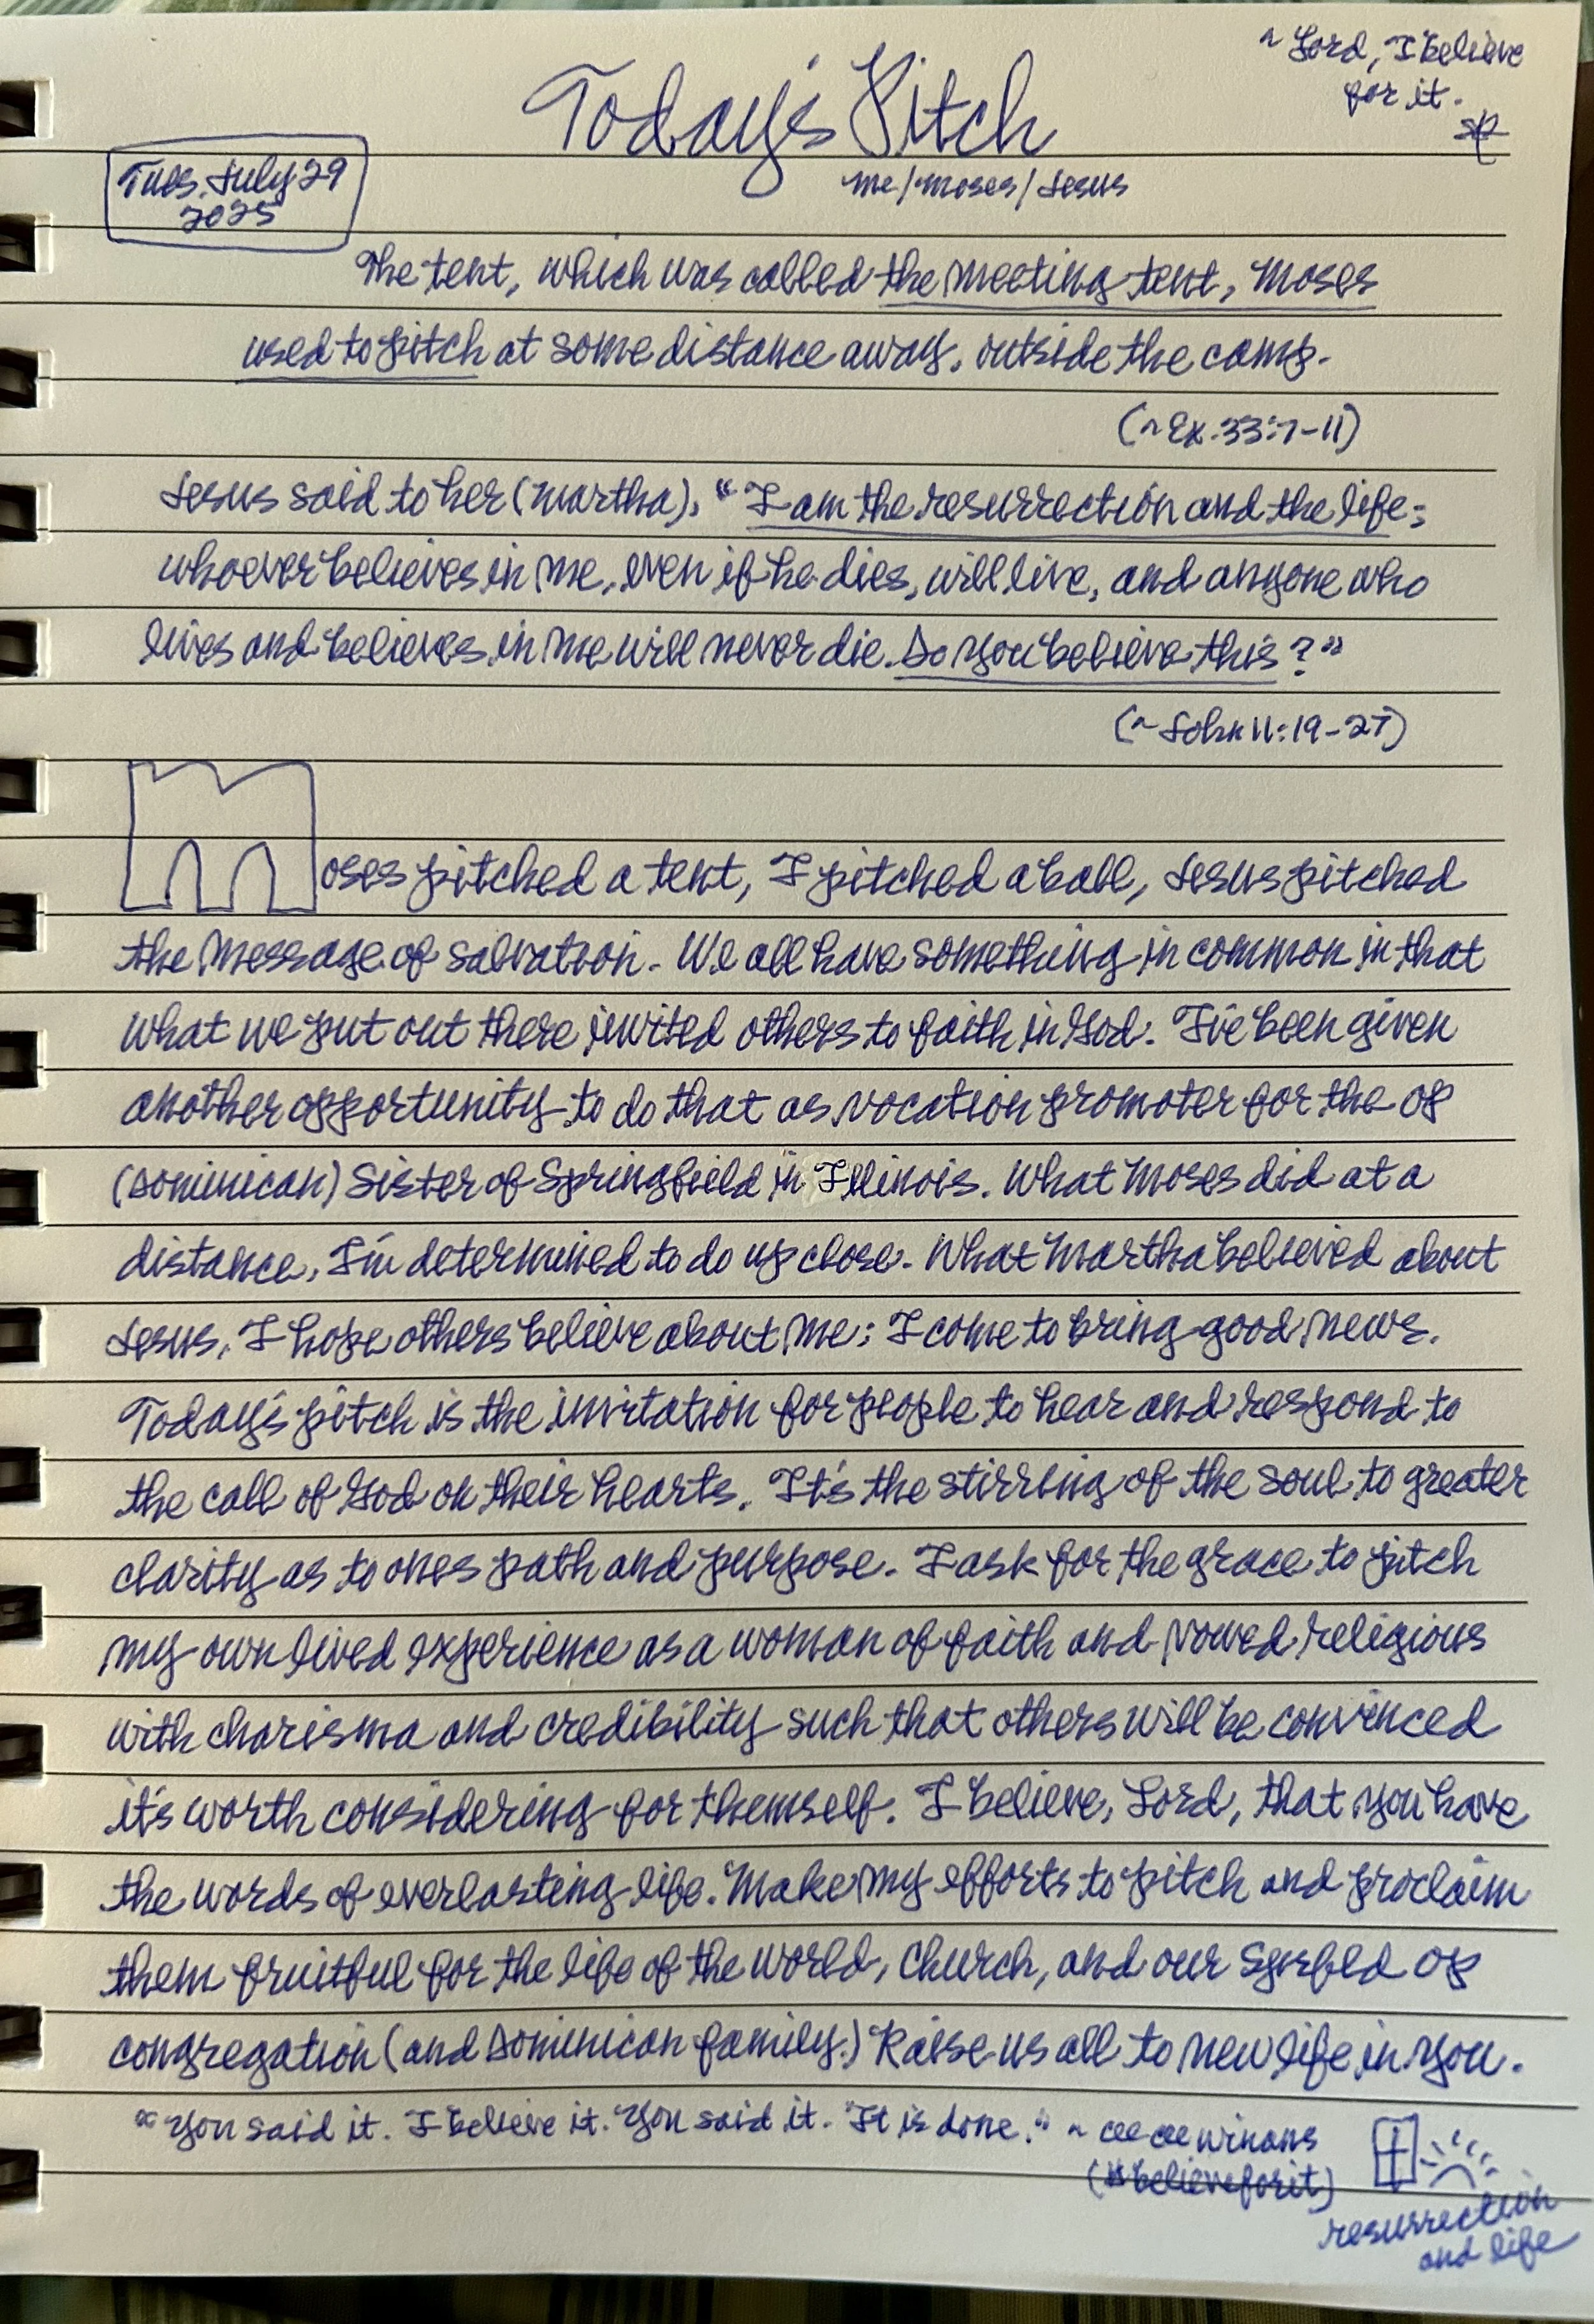 ~ Lord, I believe
for it.
sp
Today's Pitch
me/moses/Jesus
Tues. July 29
2025
The tent, which was called the meeting tent, Moses
used to pitch at some distance away, outside the camp.
(~Ex. 33:7-11)
Jesus said to her (Martha), "I am the resurrection and the life;
whoever believes in me, even if he dies, will live, and anyone who
lives and believes in me will never die. Do you believe this?"
(~John 11:19-27)
Moses pitched a tent, I pitched a ball, Jesus pitched
the message of salvation. We all have something in common in that
what we put out there invited others to faith in God. I've been given
another opportunity to do that as vocation promoter for the OP
(Dominican) Sister of Springfield in Illinois. What Moses did at a
distance, I'm determined to do up close. What Martha believed about
Jesus, I hope others believe about me: I come to bring good news.
Today's pitch is the invitation for people to hear and respond to
the call of God on their hearts. It's the stirring of the soul to greater
clarity as to ones path and purpose. I ask for the grace to pitch
my own lived experience as a woman of faith and vowed religious
with charisma and credibility such that others will be convinced
it's worth considering for themself. I believe, Lord, that you have
the words of everlasting life. Make my efforts to pitch and proclaim
them fruitful for the life of the world, church, and our Spgfld OP
congregation (and Dominican family.) Raise us all to new life in you.
"You said it. I believe it. You said it. It is done." ~ cece winans
(#believeforit)
resurrection
and life